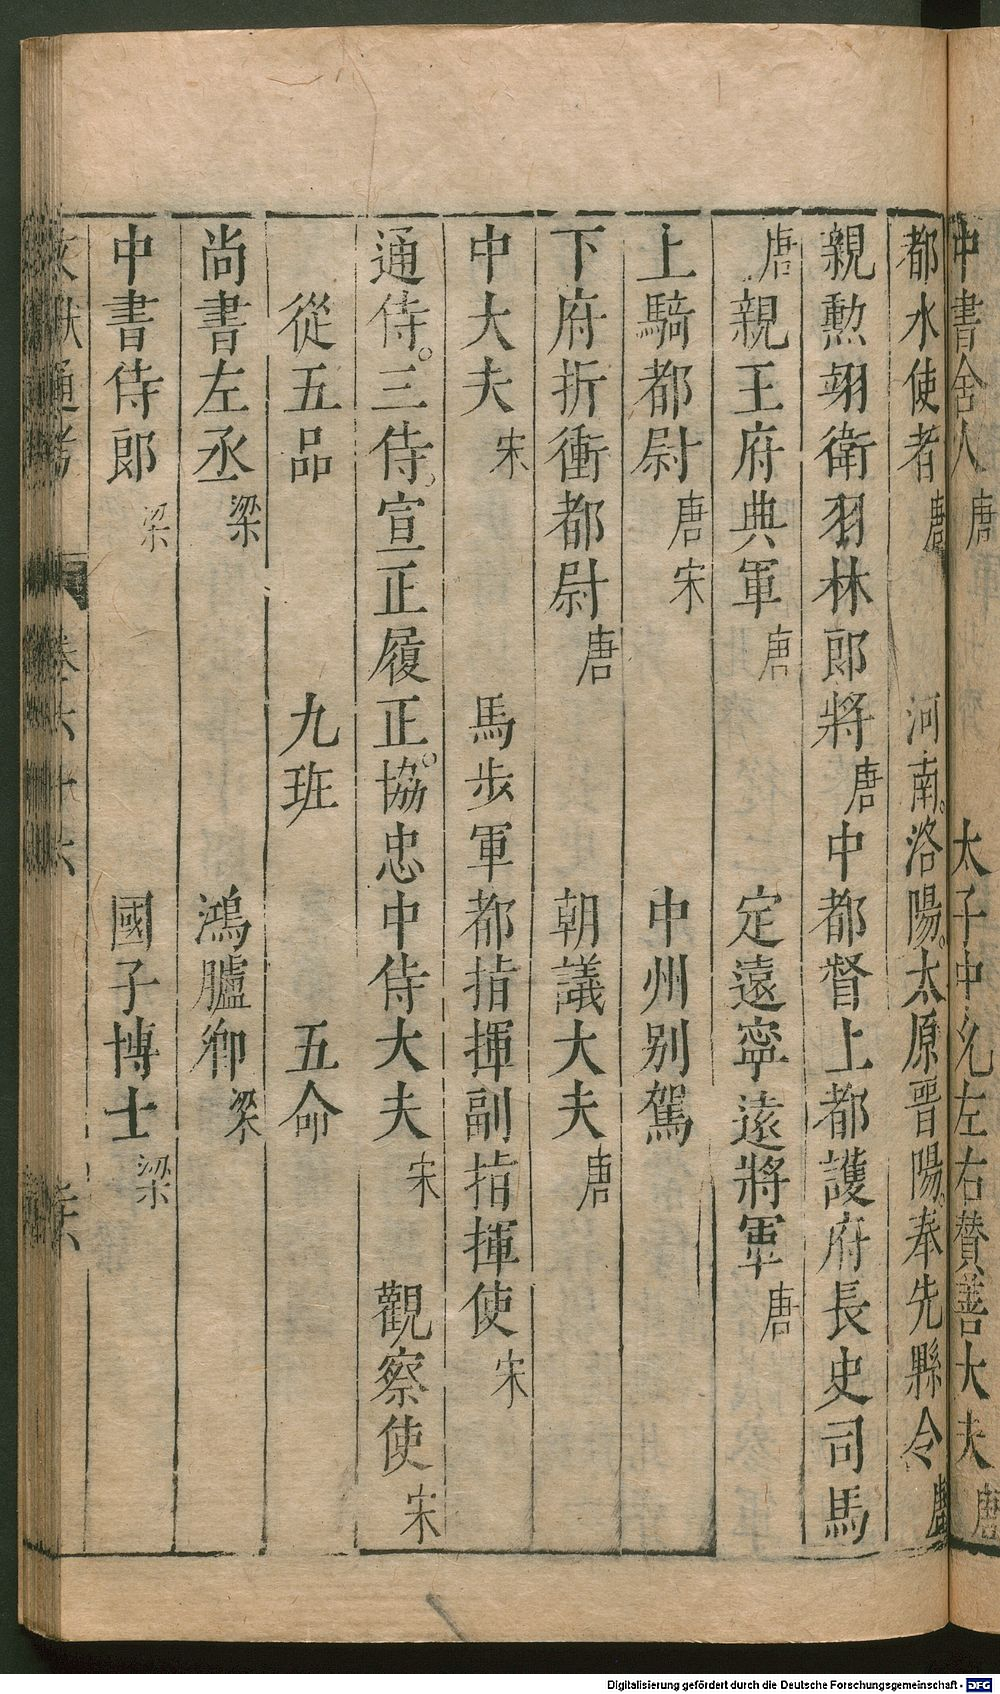 中書舍人 唐 太子中允左右贊善大夫 唐
都水使者 唐 河南。洛陽。太原晉陽。奉先縣令 唐
親勲翊衛羽林郎將 唐 中都督上都護府長史司馬
唐 親王府典軍 唐 定遠寧遠將軍 唐
上騎都尉 唐宋 中州别駕
下府折衝都尉 唐 朝議大夫 唐
中大夫 宋 馬步軍都指揮副指揮使 宋
通侍。三侍。宣正履正。協忠中侍大夫 宋 觀察使 宋
從五品 九班 五命
尚書左丞 梁 鴻臚卿 梁
中書侍郎 梁 國子博士 梁
文獻通考 卷六十六
Digitalisierung gefördert durch die Deutsche Forschungsgemeinschaft - DFG